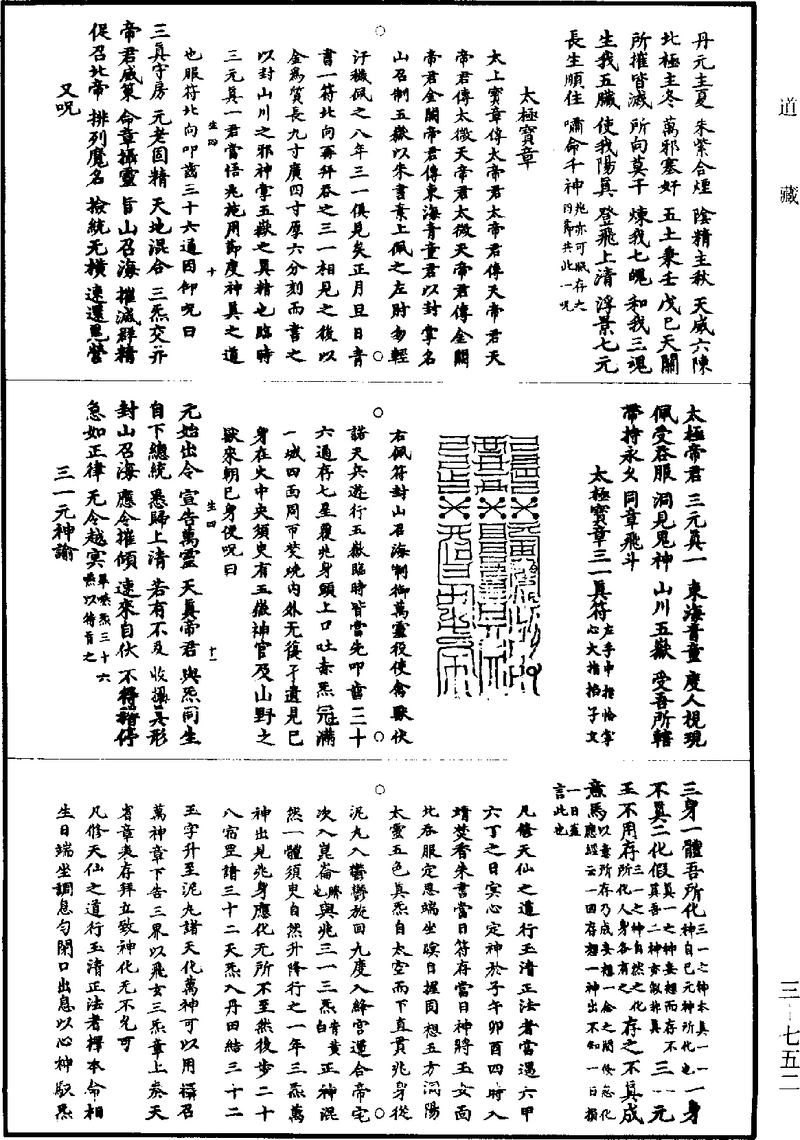 道藏
丹元主夏 朱紫合煙 陰精主秋 天威六陳
北極主冬 萬邪塞奸 五土秉壬 戊巳天關
所摧皆滅 所向莫干 煉我七魄 和我三魂
生我五臟 使我陽真 登飛上清 浮景七元
長生順住 嘯命千神 兆亦可服存大
太極寶章
太上寶章傳太帝君太帝君傳天帝君天
帝君傳太微天帝君太微天帝君傳金闕
帝君金闕帝君傳東海青童君以封掌名
山召制五嶽以朱書素上佩之左肘勿輕
汙穢佩之八年三一俱見矣正月旦日青
書一符北向再拜吞之三一相見之後以
金為質長九寸廣四寸厚六分刻而書之
以封山川之邪神掌五嶽之真精也臨時
三元真一君當悟兆施用節度神真之道
生四 十
也服符北向叩齒三十六通因仰呪曰
三真守房 元老固精 天地混合 三炁交并
帝君威策 命章攝靈 封山召海 摧滅群精
促召北帝 排列魔名 檢統无橫 速還鬼營
又呪
太極帝君 三元真一 東海青童 度人視現
佩受吞服 洞見鬼神 山川五嶽 受吾所轄
帶持永久 同章飛斗
太極寶章三一真符 左手中指恰掌
心大指掐子文
右佩符封山召海制御萬靈役使禽獸伏
諸天兵遊行五嶽臨時皆當先叩齒三十
六通存七星覆兆身頭上口吐赤炁冠滿
一城四面周帀焚燒內外无復孑遺見已
身在火中央須臾有五嶽神官及山野之
獸來朝已身便呪曰
生四 十一
元始出令 宣告萬靈 天真帝君 與炁同生
自下總統 悉歸上清 若有不及 收攝真形
封山召海 應令摧傾 速來自伏 不得暫停
急如正律 无令越冥 畢嚥炁三十六
三一元神論
三身一體吾所化 三一之神本真一一一
神自已元神所化也 一身
不真二化假 三元
王不用存所化 存之不真成
意馬
一日蓋
言此也
凡修天仙之道行玉清正法者當遇六甲
六丁之日冥心定神於子午卯酉四時入
靖焚香朱書當日符存當日神將玉女面
北吞服定息端坐瞑目握固想五方洞陽
太靈五色真炁自太空而下直貫兆身從
泥丸入鬱鬱旋回九度入絳宮運合帝宅
次入崑崙 臍也 與兆三一三炁 青黃白 正神混
然一體須臾自然升降行之一年三炁萬
神出見兆身應化无所不至然後步二十
八宿罡請三十二天炁入丹田結三十二
玉字升至泥丸諸天化萬神可以用攝召
萬神章下告三界以飛玄三炁章上奏天
省章表存拜立致神化无不允可
凡修天仙之道行玉清正法者擇本命相
生日端坐調息勻閉口出息以心神馭炁
三-七五二